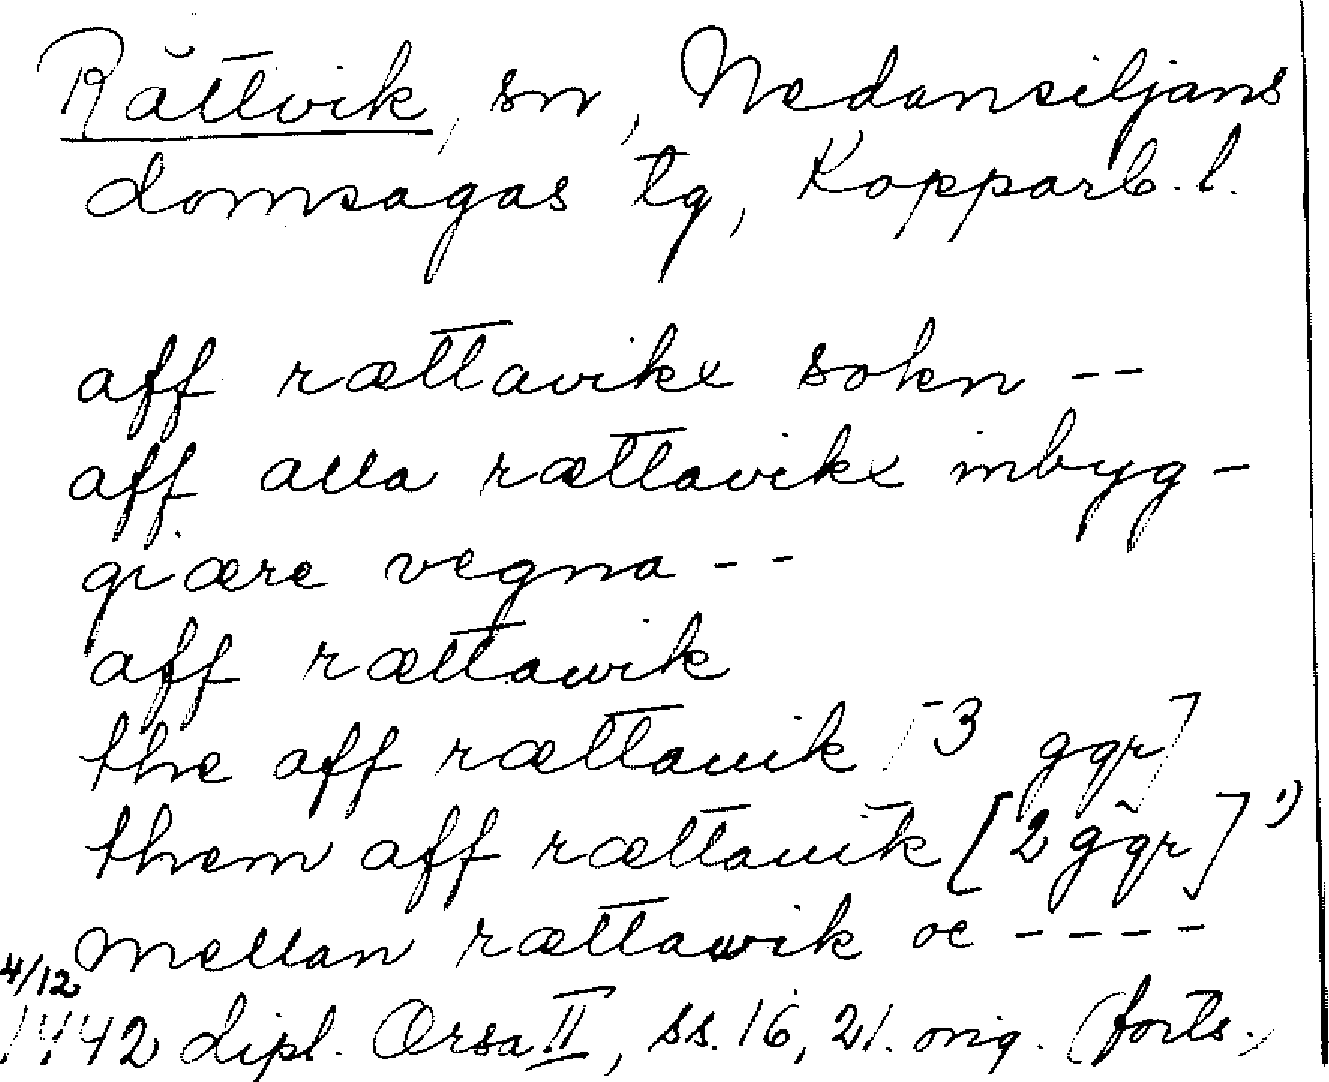 Rättvik, sn, Nedansiljans
domsagas tg, Kopparb. l.
aff rættavikx sokn --
aff alla rættavikx inbyg-
giære vegna --
aff rættawik
the aff rættauik [3 ggr]
them aff rættauik [2 ggr] 1)
mellan rættawik oc ----
4/12
1442 dipl. Orsa II, ss. 16, 21. orig. (forts.)